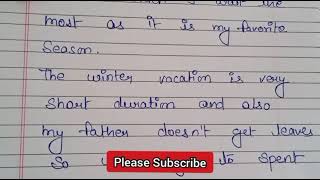 most as it is my favorite
Season.
The winter vacation is very
Short duration and also
my father doesn't get leaves
So to spent
Please Subscribe